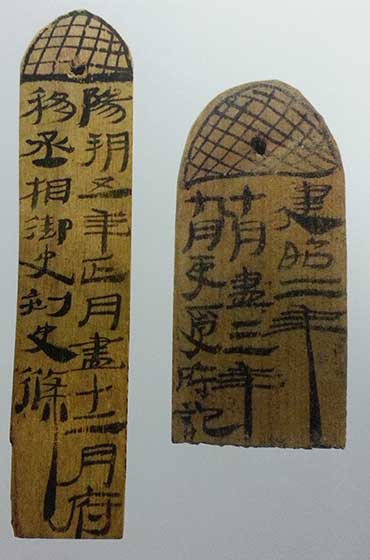 陽朔五年正月盡十二月府
移丞相御史刺史條
建昭二年
十月盡三年
九月吏受府記